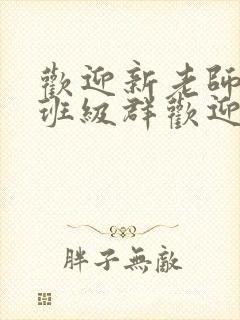 歡迎新老師
班級群歡迎
胖子無敵